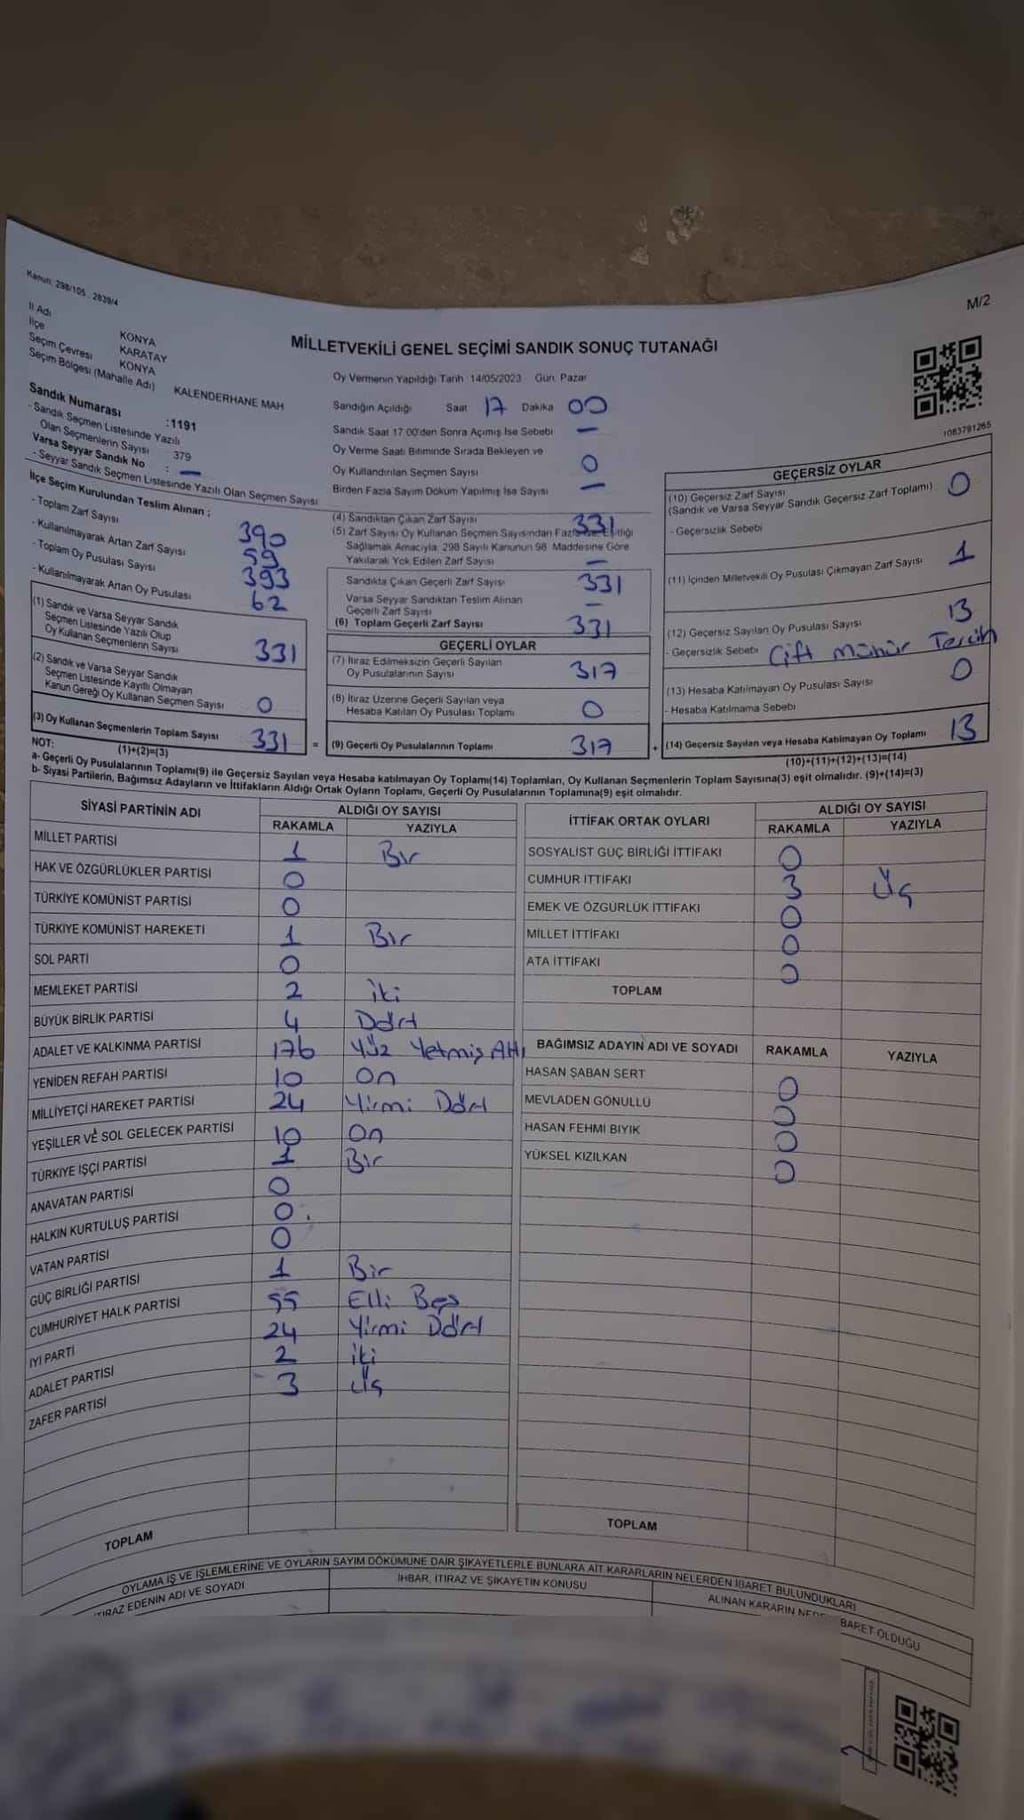 Kanun: 298/105 , 2839/4
M/2
İl Adı KONYA
İlçe KARATAY
Seçim Çevresi KONYA
Seçim Bölgesi (Mahalle Adı) KALENDERHANE MAH
Sandık Numarası :1191
- Sandık Seçmen Listesinde Yazılı
Olan Seçmenlerin Sayısı 379
Varsa Seyyar Sandık No : —
- Seyyar Sandık Seçmen Listesinde Yazılı Olan Seçmen Sayısı
İlçe Seçim Kurulundan Teslim Alınan :
- Toplam Zarf Sayısı 390
- Kullanılmayarak Artan Zarf Sayısı 59
- Toplam Oy Pusulası Sayısı 393
- Kullanılmayarak Artan Oy Pusulası 62
(1) Sandık ve Varsa Seyyar Sandık
Seçmen Listesinde Yazılı Olup
Oy Kullanan Seçmenlerin Sayısı 331
(2) Sandık ve Varsa Seyyar Sandık
Seçmen Listesinde Kayıtlı Olmayan
Kanun Gereği Oy Kullanan Seçmen Sayısı 0
(3) Oy Kullanan Seçmenlerin Toplam Sayısı 331 =
(1)+(2)=(3)
MİLLETVEKİLİ GENEL SEÇİMİ SANDIK SONUÇ TUTANAĞI
Oy Vermenin Yapıldığı Tarih 14/05/2023 Gün: Pazar
Sandığın Açıldığı Saat 17 Dakika 00
Sandık Saat 17:00'den Sonra Açımış İse Sebebi —
Oy Verme Saati Bitiminde Sırada Bekleyen ve
Oy Kullandırılan Seçmen Sayısı 0
Birden Fazla Sayım Döküm Yapılmış İse Sayısı —
(4) Sandıktan Çıkan Zarf Sayısı 331
(5) Zarf Sayısı Oy Kullanan Seçmen Sayısından Fazla
Sağlamak Amacıyla, 298 Sayılı Kanunun 98. Maddesine Göre
Yakılarak Yok Edilen Zarf Sayısı —
Sandıkta Çıkan Geçerli Zarf Sayısı 331
Varsa Seyyar Sandıktan Teslim Alınan
Geçerli Zarf Sayısı —
(6) Toplam Geçerli Zarf Sayısı 331
GEÇERLİ OYLAR
(7) İtiraz Edilmeksizin Geçerli Sayılan
Oy Pusulalarının Sayısı 317
(8) İtiraz Üzerine Geçerli Sayılan veya
Hesaba Katılan Oy Pusulası Toplamı 0
(9) Geçerli Oy Pusulalarının Toplamı 317 +
1083791265
GEÇERSİZ OYLAR
(10) Geçersiz Zarf Sayısı
(Sandık ve Varsa Seyyar Sandık Geçersiz Zarf Toplamı) 0
- Geçersizlik Sebebi
(11) İçinden Milletvekili Oy Pusulası Çıkmayan Zarf Sayısı 1
(12) Geçersiz Sayılan Oy Pusulası Sayısı 13
- Geçersizlik Sebebi Çift Mühür Tercih
(13) Hesaba Katılmayan Oy Pusulası Sayısı 0
- Hesaba Katılmama Sebebi
(14) Geçersiz Sayılan veya Hesaba Katılmayan Oy Toplamı 13
(10)+(11)+(12)+(13)=(14)
NOT:
a- Geçerli Oy Pusulalarının Toplamı(9) ile Geçersiz Sayılan veya Hesaba katılmayan Oy Toplamı(14) Toplamları, Oy Kullanan Seçmenlerin Toplam Sayısına(3) eşit olmalıdır. (9)+(14)=(3)
b- Siyasi Partilerin, Bağımsız Adayların ve İttifakların Aldığı Ortak Oyların Toplamı, Geçerli Oy Pusulalarının Toplamına(9) eşit olmalıdır.
SİYASİ PARTİNİN ADI ALDIĞI OY SAYISI
RAKAMLA YAZIYLA
MİLLET PARTİSİ 1 Bir
HAK VE ÖZGÜRLÜKLER PARTİSİ 0
TÜRKİYE KOMÜNİST PARTİSİ 0
TÜRKİYE KOMÜNİST HAREKETİ 1 Bir
SOL PARTİ 0
MEMLEKET PARTİSİ 2 iki
BÜYÜK BİRLİK PARTİSİ 4 Dört
ADALET VE KALKINMA PARTİSİ 176 Yüz Yetmiş Altı
YENİDEN REFAH PARTİSİ 10 On
MİLLİYETÇİ HAREKET PARTİSİ 24 Yirmi Dört
YEŞİLLER VE SOL GELECEK PARTİSİ 10 On
TÜRKİYE İŞÇİ PARTİSİ 1 Bir
ANAVATAN PARTİSİ 0
HALKIN KURTULUŞ PARTİSİ 0
VATAN PARTİSİ 0
GÜÇ BİRLİĞİ PARTİSİ 1 Bir
CUMHURİYET HALK PARTİSİ 55 Elli Beş
İYİ PARTİ 24 Yirmi Dört
ADALET PARTİSİ 2 iki
ZAFER PARTİSİ 3 Üç
TOPLAM
İTTİFAK ORTAK OYLARI ALDIĞI OY SAYISI
RAKAMLA YAZIYLA
SOSYALİST GÜÇ BİRLİĞİ İTTİFAKI 0
CUMHUR İTTİFAKI 3 Üç
EMEK VE ÖZGÜRLÜK İTTİFAKI 0
MİLLET İTTİFAKI 0
ATA İTTİFAKI 0
TOPLAM
BAĞIMSIZ ADAYIN ADI VE SOYADI RAKAMLA YAZIYLA
HASAN ŞABAN SERT 0
MEVLADEN GÖNÜLLÜ 0
HASAN FEHMİ BIYIK 0
YÜKSEL KIZILKAN 0
TOPLAM
OYLAMA İŞ VE İŞLEMLERİNE VE OYLARIN SAYIM DÖKÜMÜNE DAİR ŞİKAYETLERLE BUNLARA AİT KARARLARIN NELERDEN İBARET BULUNDUKLARI
İTİRAZ EDENİN ADI VE SOYADI İHBAR, İTİRAZ VE ŞİKAYETİN KONUSU ALINAN KARARIN İBARET OLDUĞU